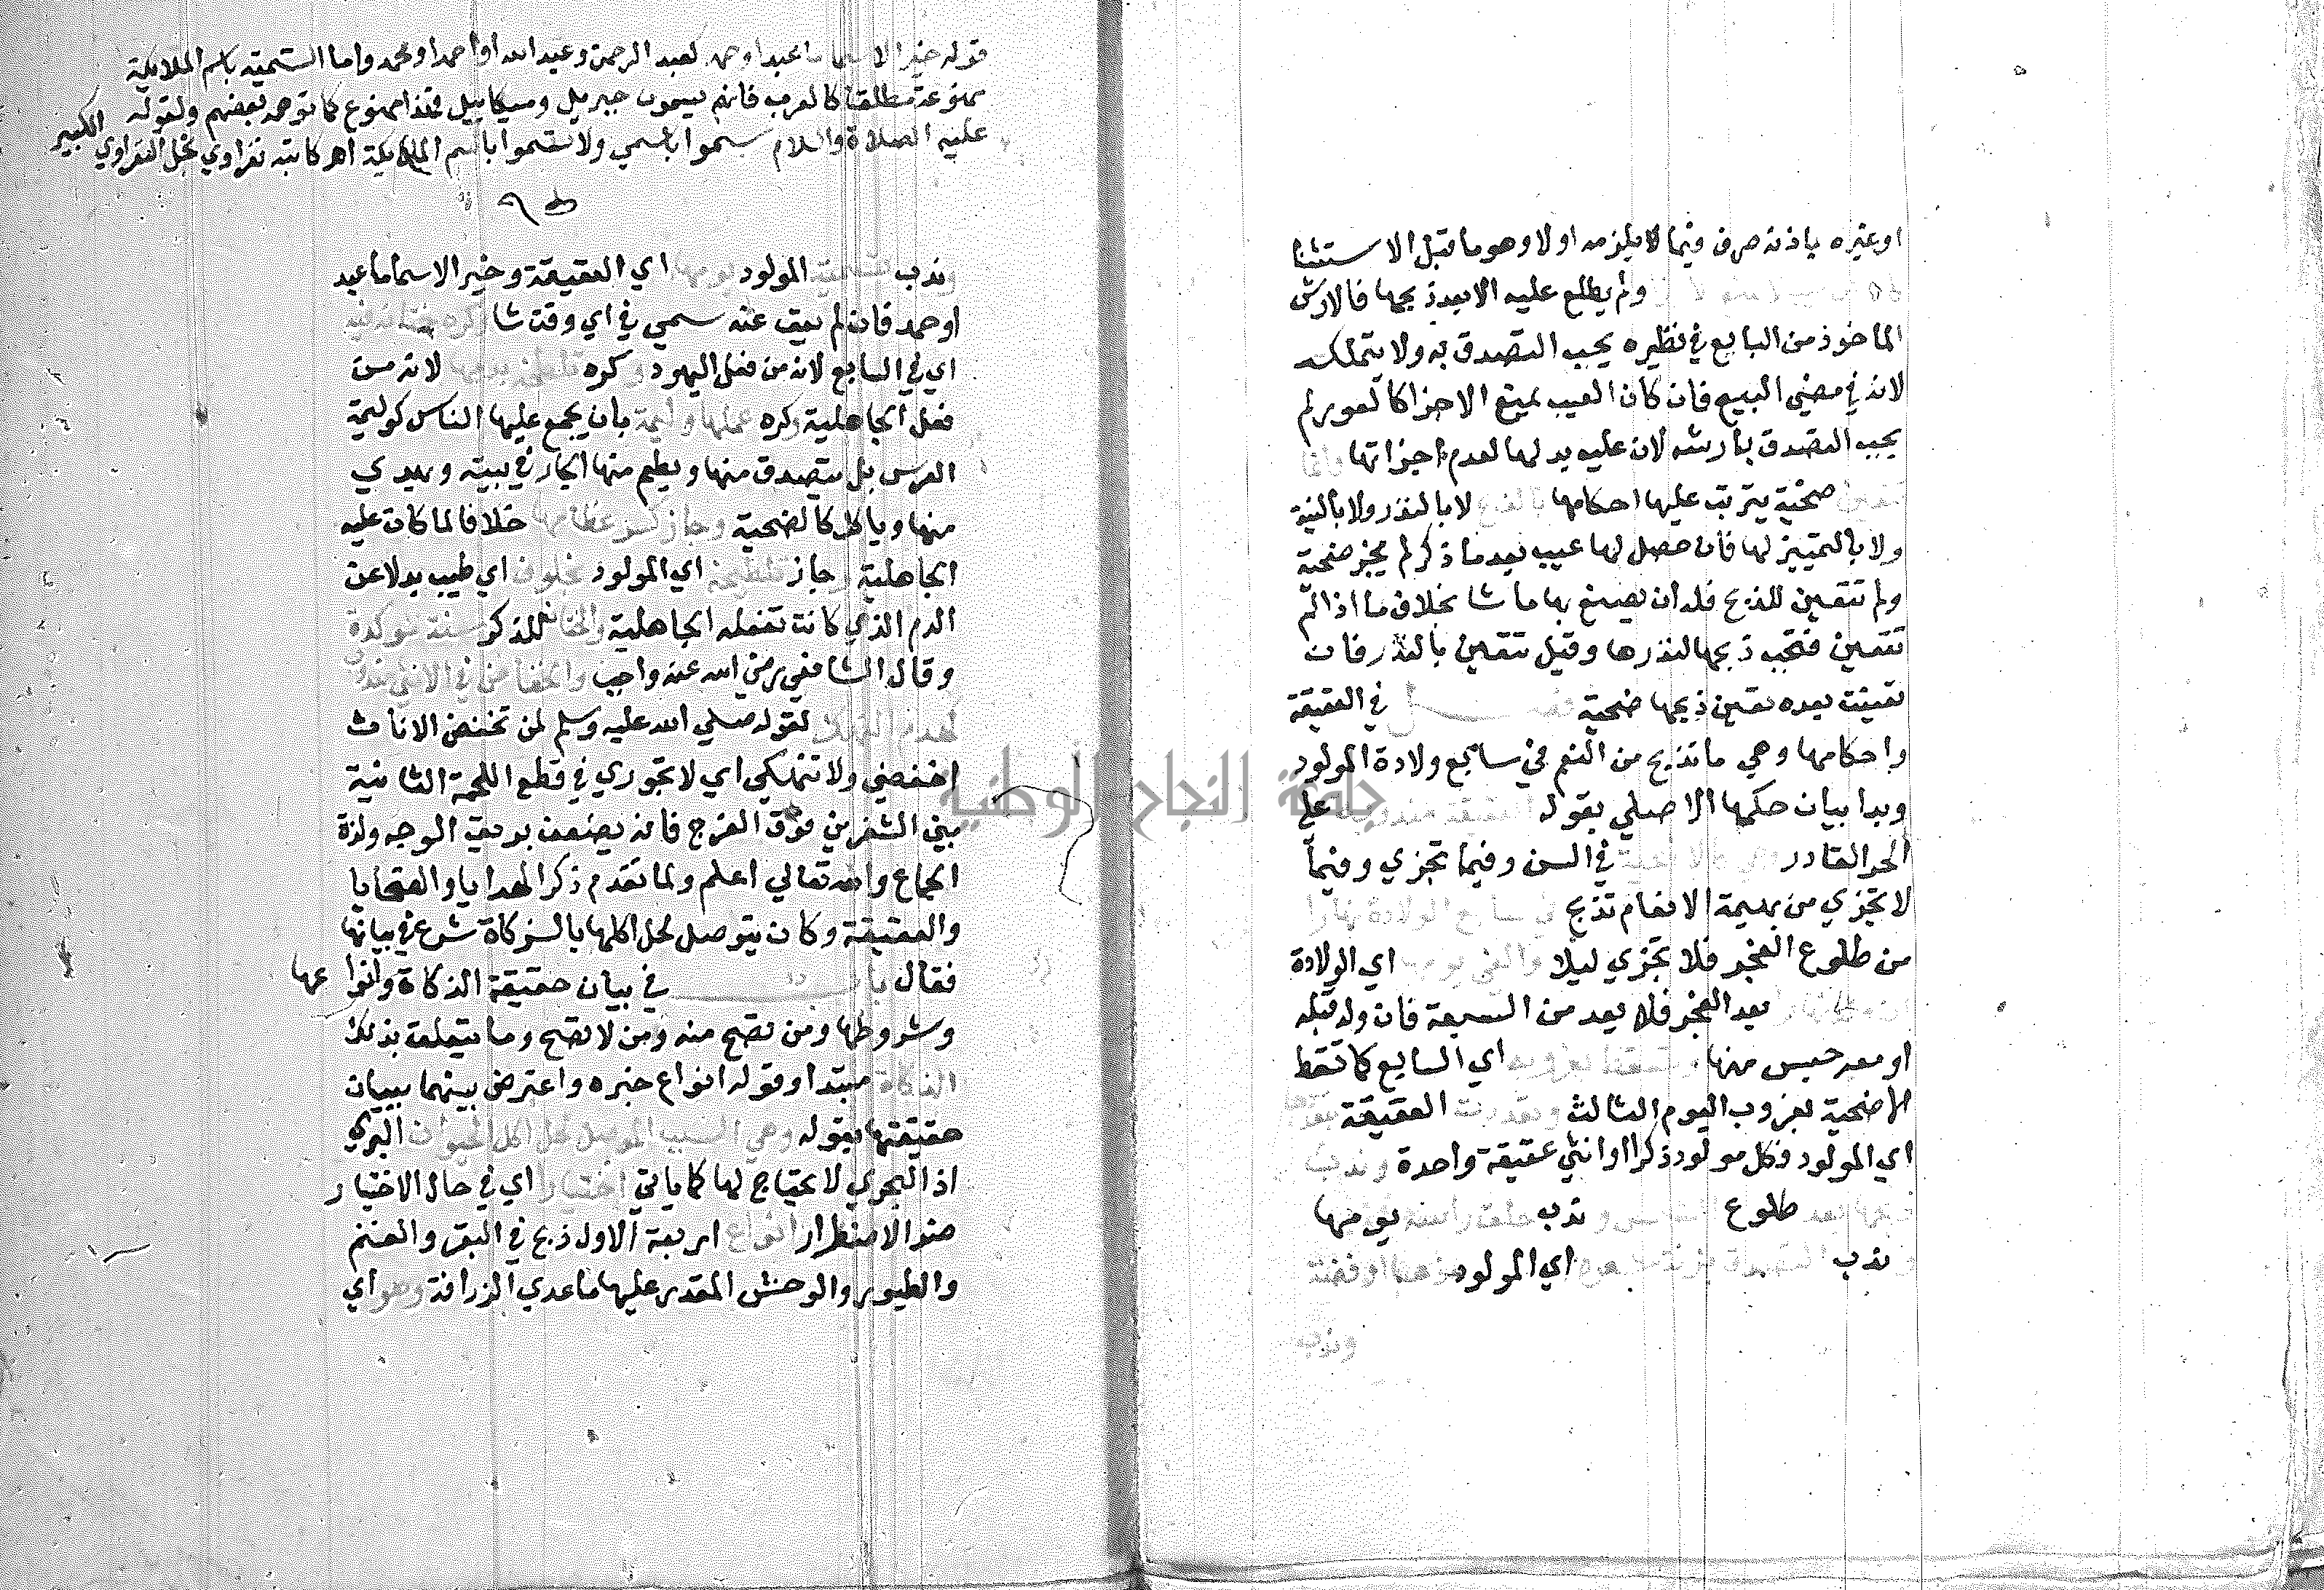 او عيره باذنه صرف فيما لا يلزمه اولا وهو ما قبل الاستثنا
ولم يطلع عليه الا بعد ذبحها فالارش
الماخوذ من البايع في نظيره يجب التصدق به ولا يتملكه
لانه في معني البيع فان كان العيب يمنع الاجزا كالعور لم
يجب التصدق بارشه لان عليه بدلها لعدم اجزائها
ضحية يترتب عليها احكامها بالذبح لا بالنذر ولا بالنية
ولا بالتمييز لها فان حصل لها عيب بعد ما ذكر لم يجز ضحية
ولم تتعين للذبح فله ان يصنع بها ما شا بخلاف ما اذا لم
تتعين فتجب ذبحها لنذرها وقيل تتعين بالنذر فان
تعيبت بعده تعين ذبحها ضحية فصل في العقيقة
واحكامها وهي ما تذبح من النعم في سابع ولادة المولود
وبدا ببيان حكمها الاصلي بقوله العقيقة مندوبة علي
الحر القادر وهي كالاضحية في السن وفيما تجزي وفيما
لا تجزي من بهيمة الانعام تذبح في سابع الولادة نهارا
من طلوع الفجر فلا تجزي ليلا والغي يومها اي الولادة
بعد الفجر فلا يعد من السبعة فان ولد قبله
او معه حسب منها وتسقط بغروبه اي السابع كما تسقط
الاضحية بغروب اليوم الثالث وتعددت العقيقة بتعدده
اي المولود فكل مولود ذكرا او انثي عقيقة واحدة وندب
ذبحها بعد طلوع الشمس و ندب حلق راسه يومها
و ندب التصدق بزنة شعره اي المولود ذهبا او فضة
وندب
قوله خير الاسما ما عبد او حمد كعبد الرحمن وعبد الله او احمد او محمد واما التسمية باسم الملايكة
ممنوعة مطلقا كالعرب فانهم يسمون جبريل وميكاييل فهذا ممنوع كما توهمه بعضهم ولقوله
عليه الصلاة والسلام سموا باسمي ولا تسموا باسم الملايكة اهر كاتبه نفراوي نجل النفراوي الكبير
وندب تسمية المولود يومها اي العقيقة وخير الاسما ما عبد
او حمد فان لم يعق عنه سمي في اي وقت شا وكره ختانه فيه
اي في السابع لانه من فعل اليهود وكره تلطخه بدمها لانه من
فعل الجاهلية وكره عملها وليمة بان يجمع عليها الناس كوليمة
العرس بل يتصدق منها ويطعم منها الجار في بيته ويهدي
منها وياكل كالضحية وجاز كسر عظامها خلافا لما كان عليه
الجاهلية وجاز تلطيخه اي المولود بخلوق اي طيب بدلا عن
الدم الذي كانت تفعله الجاهلية والختان للذكر سنة موكدة
وقال الشافعي رضي الله عنه واجب والخفاض في الانثي مندوب
لقوله صلي الله عليه وسلم لمن تخفض الاناث
اخفضي ولا تنهكي اي لا تجوري في قطع اللحمة الثانية
بين الشفرين فوق الفرج فانه يضعف بريق الوجه ولذة
الجماع والله تعالي اعلم ولما تقدم ذكر الهدايا والضحايا
والعقيقة وكان يتوصل لحل اكلها بالذكاة شرع في بيانها
فقال باب في بيان حقيقة الذكاة وانواعها
وشروطها ومن تصح منه ومن لا تصح وما يتعلق بذلك
الذكاة مبتدا وقوله انواع خبره واعترض بينهما ببيان
حقيقتها بقوله وهي السبب الموصل لحل اكل الحيوان البري
اذ البحري لا يحتاج لها كما ياتي اختيارا اي في حال الاختيار
ضد الاضطرار انواع اربعة الاول ذبح في البقر والغنم
والطيور والوحش المقدر عليها ما عدي الزرافة وهو اي
جامعة النجاح الوطنية